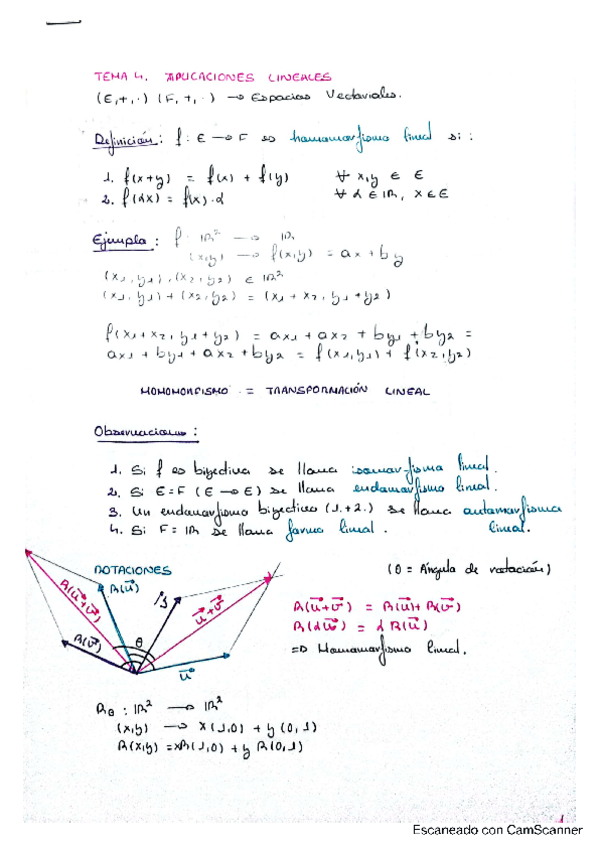 TEMA 4. APLICACIONES LINEALES
(E,+,·) (F,+,·) → Espacios Vectoriales.
Definición: f: E → F es homomorfismo lineal si:
1. f(x+y) = f(x) + f(y) ∀ x,y ∈ E
2. f(αx) = f(x)·α ∀ α ∈ IR, x ∈ E
Ejemplo: f: IR² → IR
(x,y) → f(x,y) = ax + by
(x₁,y₁),(x₂,y₂) ∈ IR²
(x₁,y₁) + (x₂,y₂) = (x₁ + x₂, y₁ + y₂)
f(x₁+x₂, y₁+y₂) = ax₁ + ax₂ + by₁ + by₂ =
ax₁ + by₁ + ax₂ + by₂ = f(x₁,y₁) + f(x₂,y₂)
HOMOMORFISMO = TRANSFORMACIÓN LINEAL
Observaciones:
1. Si f es biyectiva se llama isomorfismo lineal.
2. Si E=F (E → E) se llama endomorfismo lineal.
3. Un endomorfismo biyectivo (1.+2.) se llama automorfismo
lineal.
4. Si F = IR se llama forma lineal.
ROTACIONES
(θ = Ángulo de rotación)
R(u+v)
R(u)
u+v
R(v)
θ
u
R(u+v) = R(u)+R(v)
R(αu) = α R(u)
=> Homomorfismo lineal.
Rθ : IR² → IR²
(x,y) → x(1,0) + y(0,1)
R(x,y) = xR(1,0) + y R(0,1)
1
Escaneado con CamScanner